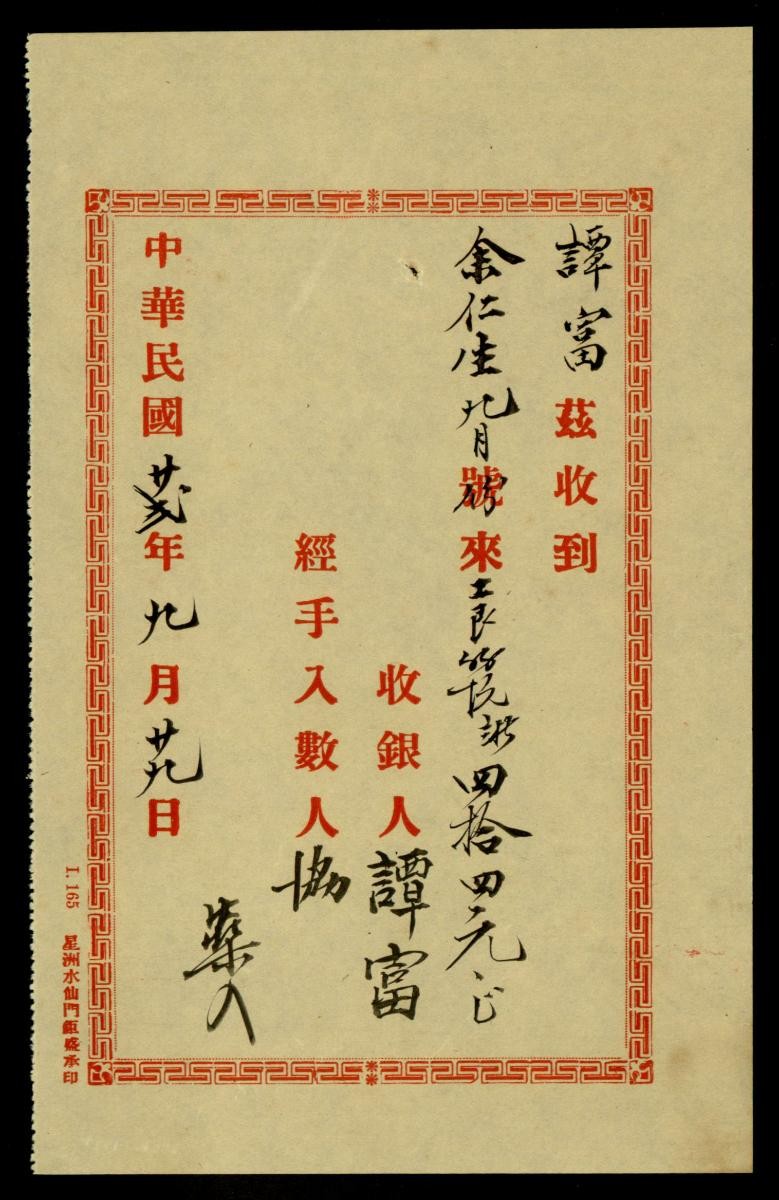 譚富茲收到
余仁生九月份號來工艮四拾四元
收銀人譚富
經手入數人協
入
中華民國廿弍年九月廿九日
I. 165 星洲水仙門鉅盛承印